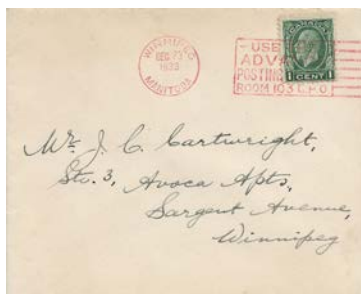 WINNIPEG
DEC 23
MANITOBA
USE
ADVA
POSTING
ROOM 103 G.P.O
CANADA
1 CENT 1
Mr. J. C. Cartwright,
Ste. 3, Avoca Apts,
Sargent Avenue,
Winnipeg